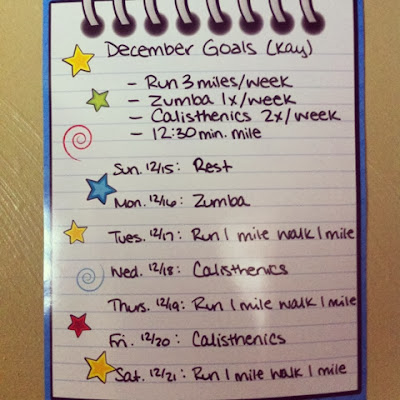 December Goals (Kay)
- Run 3 miles/week
- Zumba 1x/week
- Calisthenics 2x/week
- 12:30 min. mile
Sun. 12/15: Rest
Mon. 12/16: Zumba
Tues. 12/17: Run 1 mile walk 1 mile
Wed. 12/18: Calisthenics
Thurs. 12/19: Run 1 mile walk 1 mile
Fri. 12/20: Calisthenics
Sat. 12/21: Run 1 mile walk 1 mile